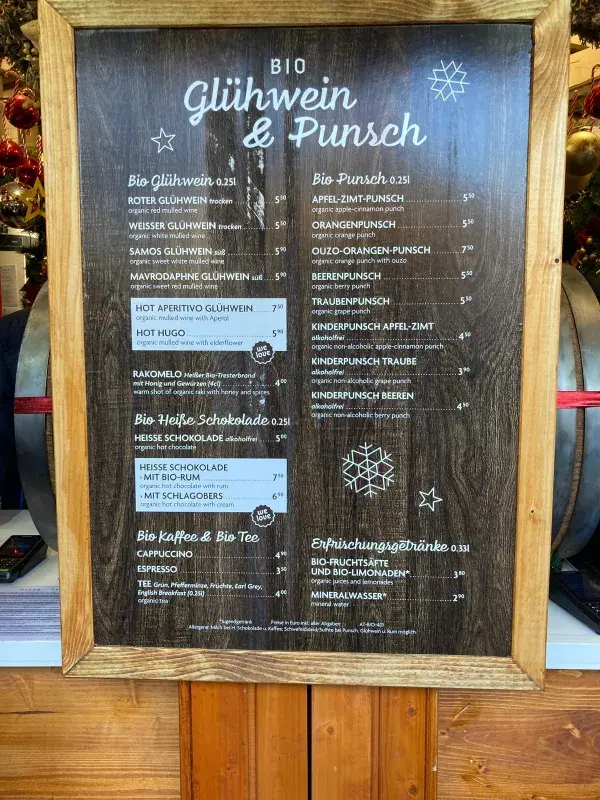 BIO
Glühwein
& Punsch
Bio Glühwein 0.25l
ROTER GLÜHWEIN trocken 5⁵⁰
organic red mulled wine
WEISSER GLÜHWEIN trocken 5⁵⁰
organic white mulled wine
SAMOS GLÜHWEIN süß 5⁹⁰
organic sweet white mulled wine
MAVRODAPHNE GLÜHWEIN süß 5⁹⁰
organic sweet red mulled wine
HOT APERITIVO GLÜHWEIN 7⁵⁰
organic mulled wine with Aperol
HOT HUGO 5⁹⁰
organic mulled wine with elderflower
we
love
RAKOMELO Heißer Bio-Tresterbrand
mit Honig und Gewürzen (4cl) 4⁰⁰
warm shot of organic raki with honey and spices
Bio Heiße Schokolade 0.25l
HEISSE SCHOKOLADE alkoholfrei 5⁰⁰
organic hot chocolate
HEISSE SCHOKOLADE
· MIT BIO-RUM 7⁵⁰
organic hot chocolate with rum
· MIT SCHLAGOBERS 6⁹⁰
organic hot chocolate with cream
we
love
Bio Kaffee & Bio Tee
CAPPUCCINO 4⁹⁰
ESPRESSO 3⁵⁰
TEE Grün, Pfefferminze, Früchte, Earl Grey,
English Breakfast (0.25l) 4⁰⁰
organic tea
Bio Punsch 0.25l
APFEL-ZIMT-PUNSCH 5⁵⁰
organic apple-cinnamon punch
ORANGENPUNSCH 5⁵⁰
organic orange punch
OUZO-ORANGEN-PUNSCH 7⁵⁰
organic orange punch with ouzo
BEERENPUNSCH 5⁵⁰
organic berry punch
TRAUBENPUNSCH 5⁵⁰
organic grape punch
KINDERPUNSCH APFEL-ZIMT
alkoholfrei 4⁵⁰
organic non-alcoholic apple-cinnamon punch
KINDERPUNSCH TRAUBE
alkoholfrei 3⁹⁰
organic non-alcoholic grape punch
KINDERPUNSCH BEEREN
alkoholfrei 4⁵⁰
organic non-alcoholic berry punch
Erfrischungsgetränke 0.33l
BIO-FRUCHTSÄFTE
UND BIO-LIMONADEN* 3⁸⁰
organic juices and lemonades
MINERALWASSER* 2⁹⁰
mineral water
*Jugendgetränk Preise in Euro inkl. aller Abgaben AT-BIO-401
Allergene: Milch bei H. Schokolade u. Kaffee; Schwefeldioxid/Sulfite bei Punsch, Glühwein u. Rum möglich